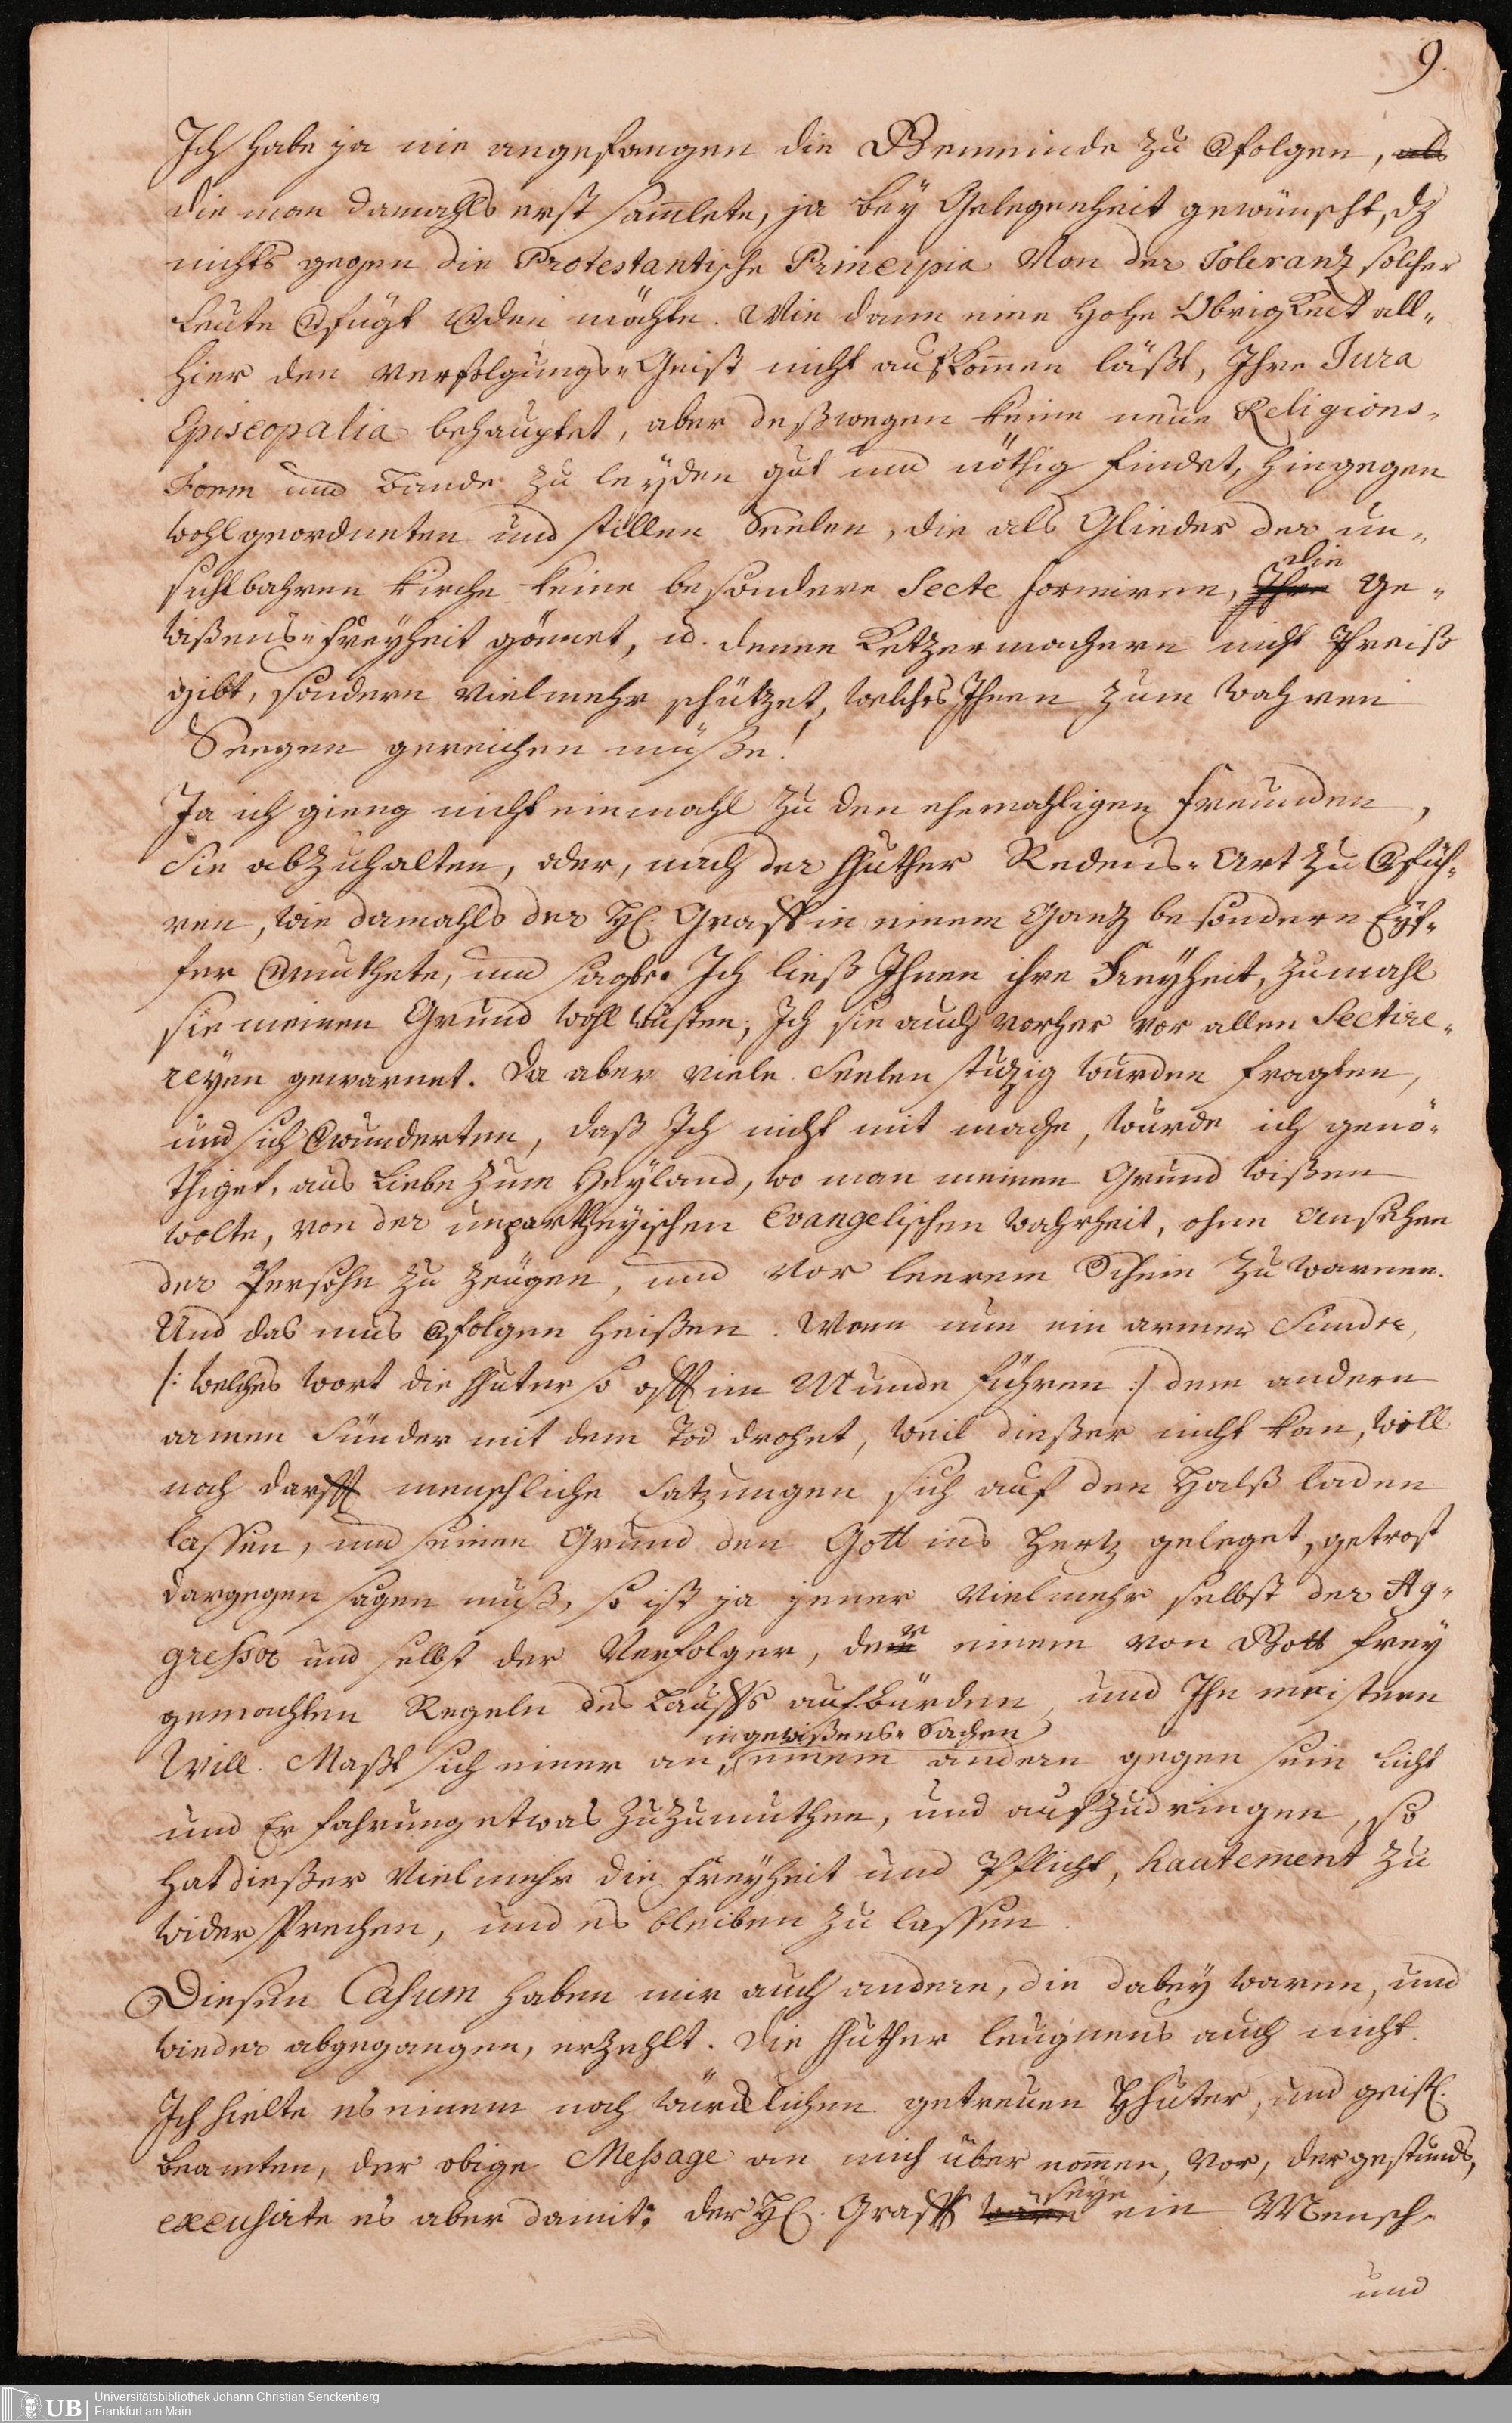 9.
Ich habe ja nie angefangen die Gemeinde zu Vfolgen, als
die man damahls erst samlete, ja bey Gelegenheit gewünscht, dz
nichts gegen die Protestantische Principia Von der Toleranz solcher
Leute Vfügt Wden möchte. Wie dann eine Hohe Obrigkeit all-
hier den Verfolgungs-Geist nicht aufkomen läßt, Ihre Jura
Episcopalia behauptet, aber deßwegen keine neue Religions-
Form und Bande zu leyden gut und nöthig findet, hingegen
wohlgeordneten und stillen Seelen, die als Glieder der un-
die
sichtbahren Kirche keine besondere Secte formiren, Ihre Ge-
wißens-Freyheit gönnet, u. denen Ketzermachern nicht Preiß
gibt, sondern vielmehr schützet, welches Ihnen zum wahren
Seegen gereichen müße!
Ja ich gieng nicht einmahl zu den ehemahligen Freunden,
Sie abzuhalten, oder, nach der Hhuther Redens-Art zu Vfüh-
ren, wie damahls der H. Graff in einem Ganz besondern Eyf-
fer Vmuthete, und sagte. Ich ließ Ihnen ihre Freyheit, zumahl
sie meinen Grund wohl wusten, Ich sie auch vorher vor allen Sectire-
reyen gewarnet. Da aber viele Seelen stuzig wurden fragten,
und sich Vwunderten, daß Ich nicht mit mache, wurde ich genö-
thiget, aus Liebe zum Heyland, wo man meinen Grund wißen
wolte, von der unpartheyischen Evangelischen Wahrheit, ohne Ansehen
der Persohn zu zeugen, und vor leerem Schein zu warnen.
Und das mus Vfolgen heißen. Wenn nun ein armer Sünder,
/: welches wort die Hhuter so offt im Munde führen :/ dem andern
armen Sünder mit dem Tod drohet, weil dießer nicht kan, will
noch darff menschliche Satzungen sich auf den Halß laden
lassen, und seinen Grund den Gott ins Hertz geleget, getrost
dargegen sagen muß, so ist ja jener vielmehr selbst der Ag-
gressor und selbst der Verfolger, der einem von Gott frey
gemachten Regeln des Lauffs aufbürden, und Ihn meistern
in gewißens-Sachen
Will. Maßt sich einer an, einem andern gegen sein Licht
und Erfahrung etwas zuzumuthen, und aufzudringen, so
hat dießer vielmehr die Freyheit und Pflicht, hautement zu
widersprechen, und es bleiben zu lassen.
Diesen Casum haben mir auch andere, die dabey waren, und
wieder abgegangen, erzehlt. Die Hhuther leugnens auch nicht.
Ich hielte es einem noch würcklichen getreuen HHuter, und geistl.
beamten, der obige Message an mich über nomen, vor, der gestunds,
seye
excusirte es aber damit: der H. Graff wäre ein Mensch.
und
UB Universitätsbibliothek Johann Christian Senckenberg
Frankfurt am Main